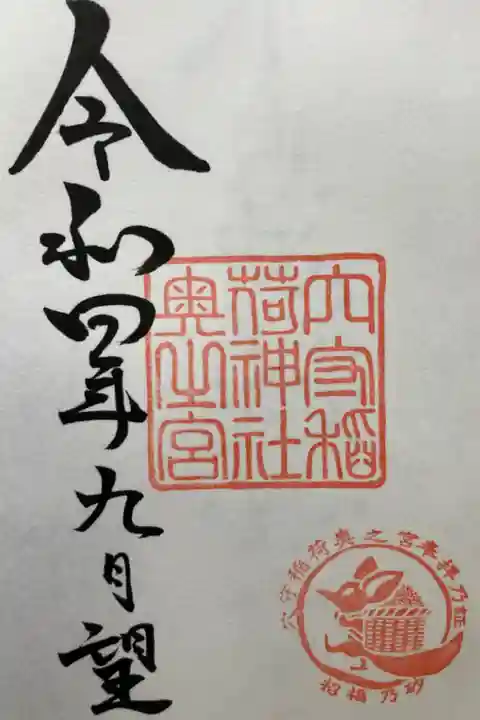 穴守稲
荷神社
奥之宮
令和四年九月望
穴守稲荷奥之宮奉拝乃証
招福乃砂